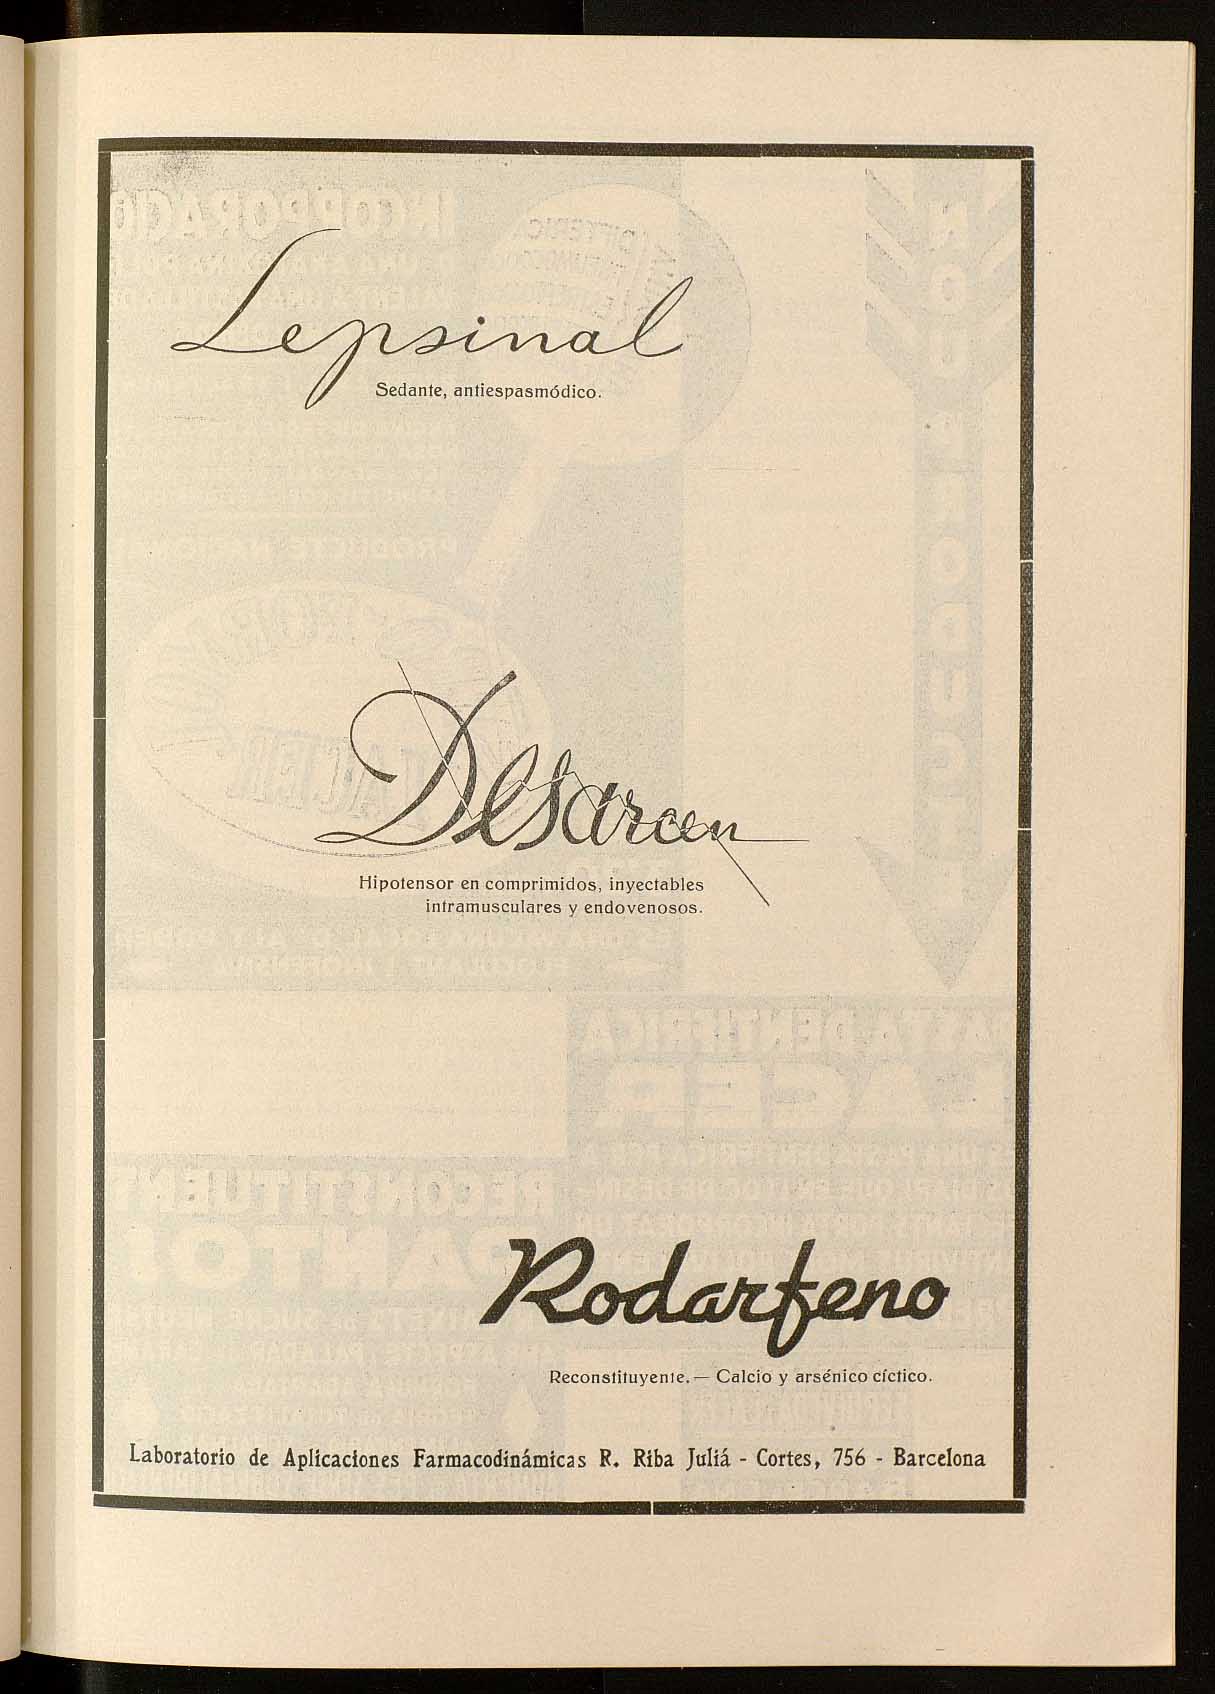 Lepsinal
Sedante, antiespasmódico.
Desarcen
Hipotensor en comprimidos, inyectables
intramusculares y endovenosos.
Rodarfeno
Reconstituyente. — Calcio y arsénico cíctico.
Laboratorio de Aplicaciones Farmacodinámicas R. Riba Juliá - Cortes, 756 - Barcelona